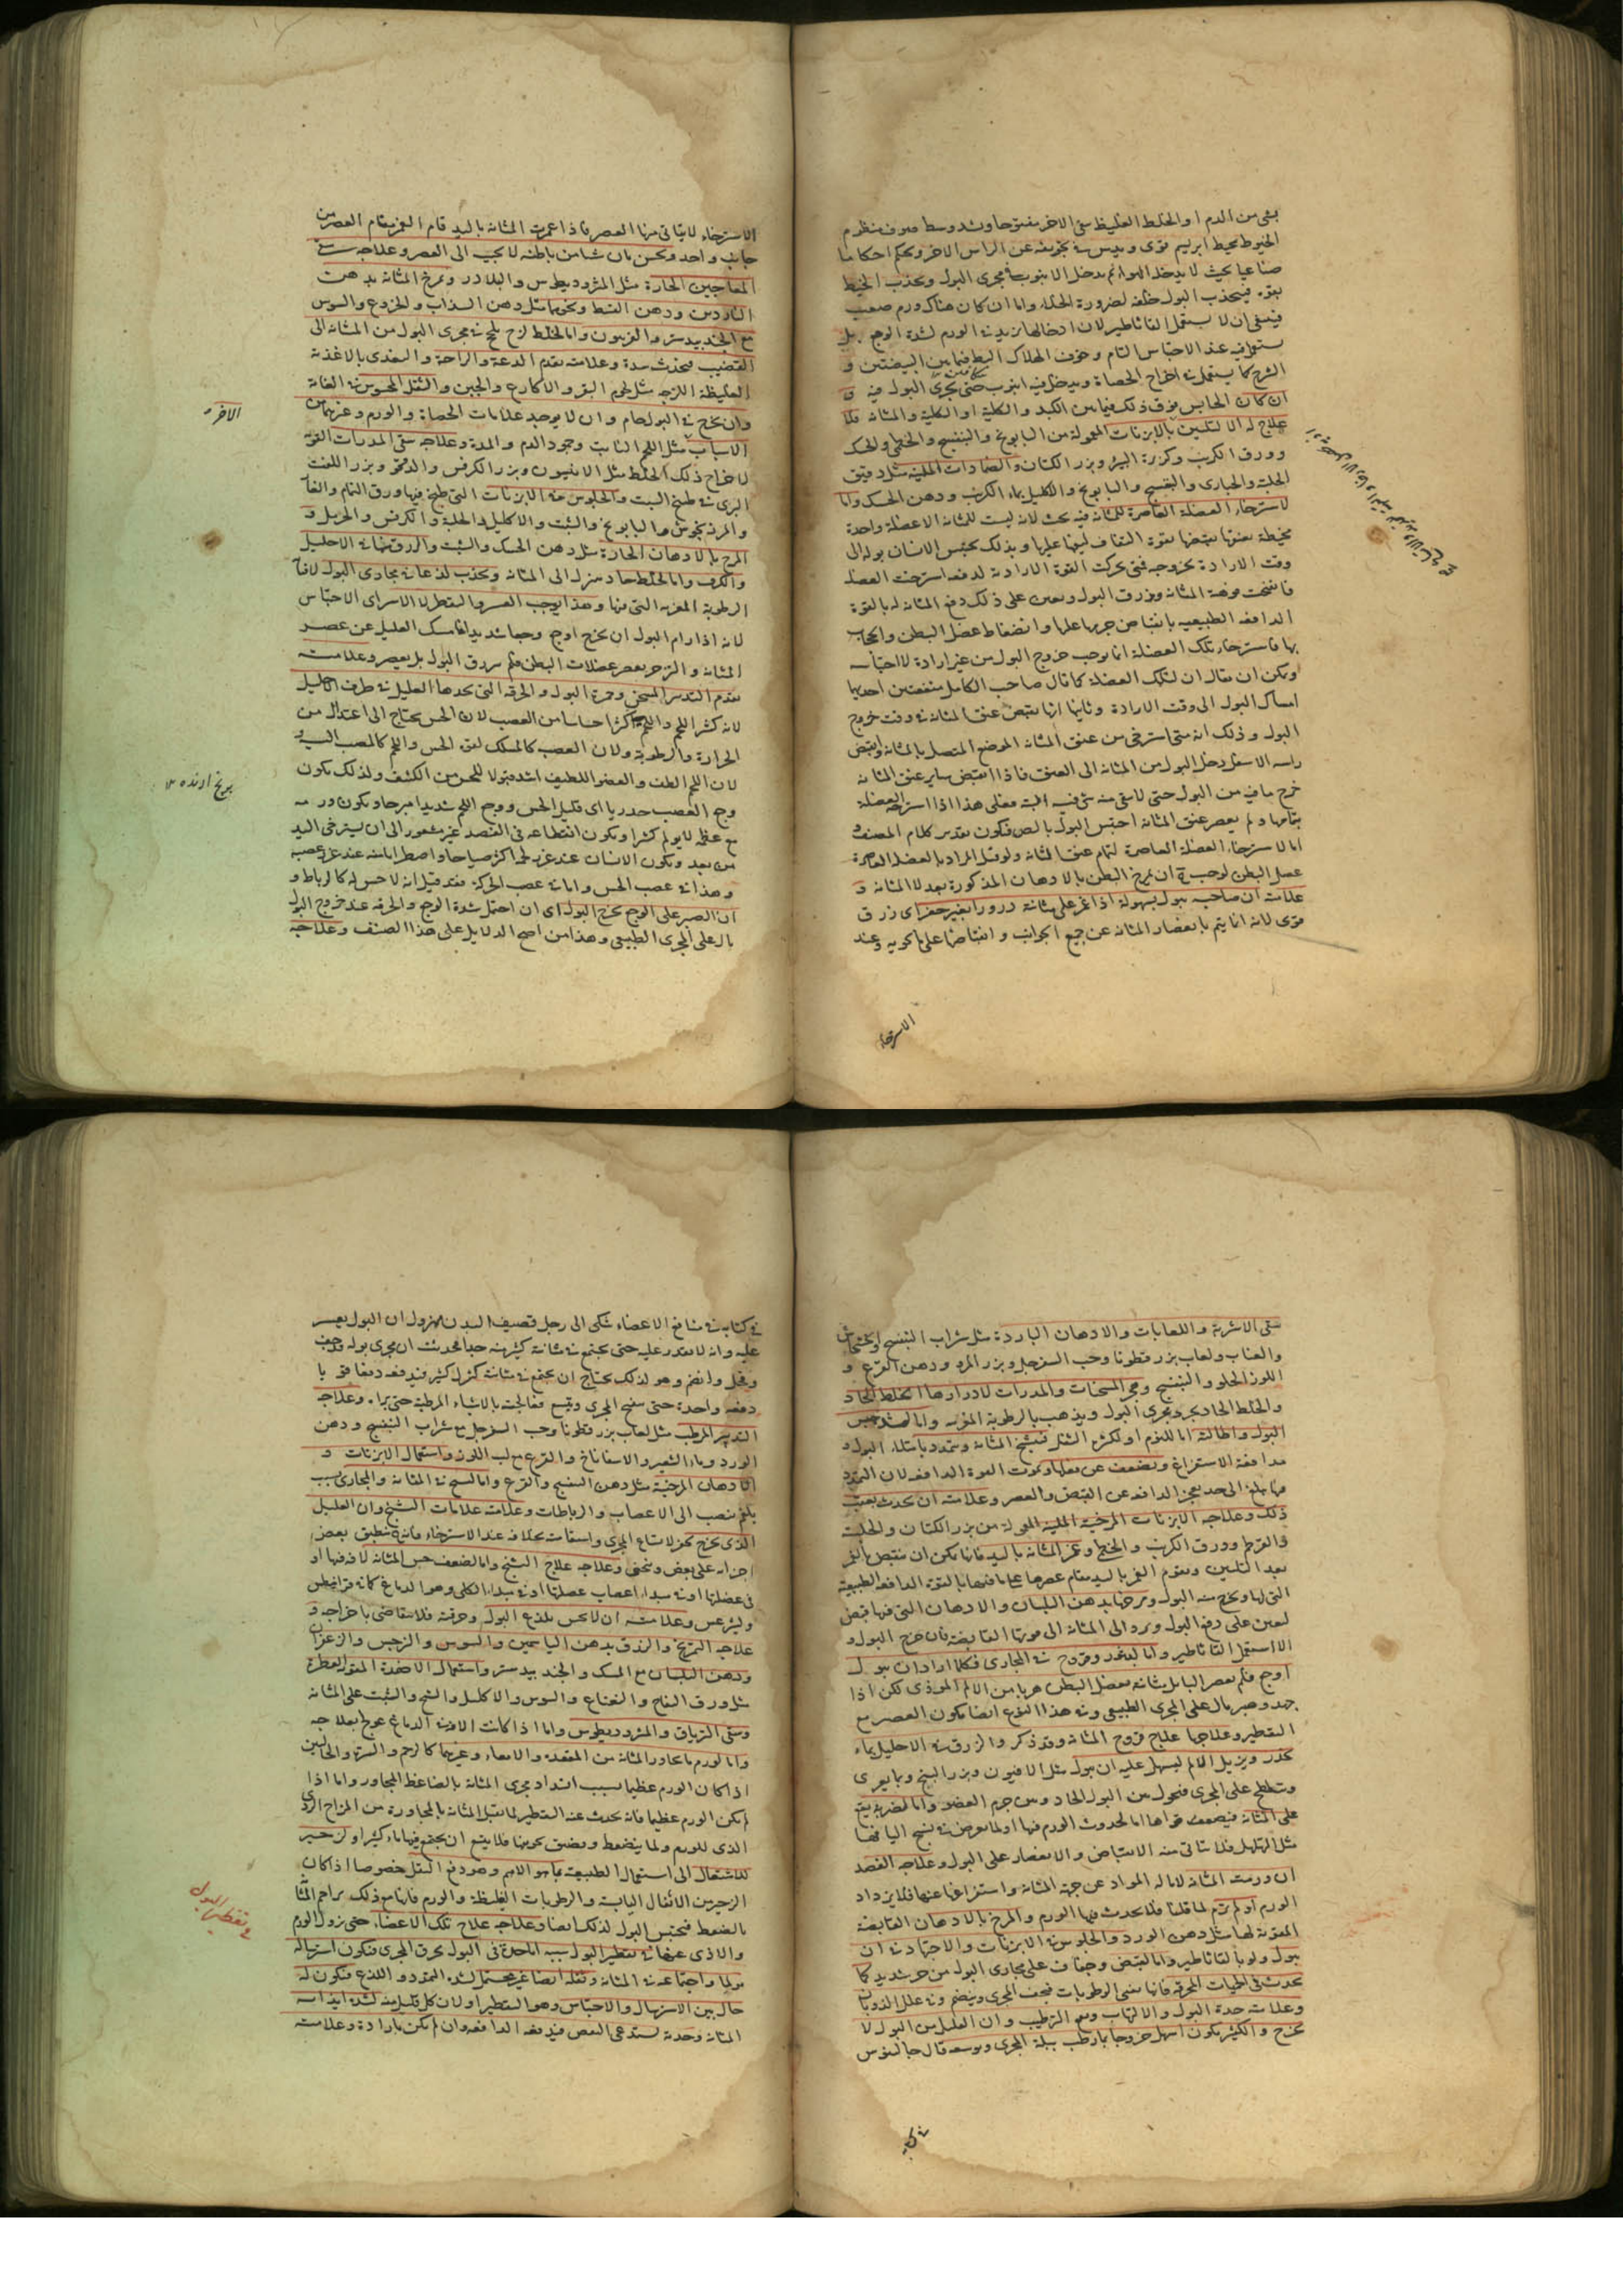 بقى من الدم او الخلط الغليظ حتى الاخر مفتوحا ويشد وسط صوف منظوم
الخيوط بخيط ابريسم قوى ويدس فى تجويفه عن الراس الاخر ويحكم احكاما
صناعيا بحيث لا يدخله الهوا ثم يدخل الانبوب فى مجرى البول ويجذب الخيط
بقوة فينجذب البول خلفه لضرورة الخلاء واما ان كان هناك ورم صعب
فينبغى ان لا يستعمل القاثاطير لان ادخالها يزيد فى الورم لشدة الوجع بل
يستعمل فيه عند الاحتباس التام وخوف الهلاك البط فيما بين البيضتين و
الشرج كما يستعمل فى اخراج الحصاة ويدخل فيه انبوب حتى يجرى البول فيه و
ان كان الحابس فوق ذلك فيما بين الكبد والكلية او الكلية والمثانة فلا
علاج له الا التليين بالابزنات المعمولة من البابونج والبنفسج والخطمى والحسك
وورق الكرنب وكزبرة البير وبزر الكتان والضمادات الملينة مثل دقيق
الحلبة والخبازى والبنفسج والبابونج والاكليل بماء الكرنب ودهن الحسك واما
لاسترخاء العضلة العاصرة للمثانة فيه بحث لانه ليست للمثانة الا عضلة واحدة
محيطة بعنقها تقبضها بقوة التفاف ليفها عليها وبذلك يحتبس الانسان بوله الى
وقت الارادة بخروجه فمتى تحركت القوة الارادية لدفعه استرخت العضلة
فانفتحت فوهة المثانة وزرق البول ويعين على ذلك دفع المثانة له بالقوة
الدافعة الطبيعية بانقباض جرمها عليها وانضغاط عضل البطن والحجاب
بها فاسترخاء تلك العضلة انما يوجب خروج البول من غير ارادة لا احتباسه
ويمكن ان يقال ان لتلك العضلة كما قال صاحب الكامل منفعتين احديهما
امساك البول الى وقت الارادة وثانيها انها تقبض عنق المثانة فى وقت خروج
البول وذلك انه متى استرخى من عنق المثانة الموضع المتصل بالمثانة وانقبض
راسه الاسفل دخل البول من المثانة الى العنق فاذا انقبض ساير عنق المثانة
خرج ما فيه من البول حتى لا يبقى منه شى فيه البتة فعلى هذا اذا استرخت العضلة
بتمامها ولم يعصر عنق المثانة احتبس البول
اما لاسترخاء العضلة العاصرة لتمام عنق المثانة ولو قيل المراد بالعضلة العاصرة
عضل البطن لوجب ح ان يمرخ البطن بالادهان المذكورة بعد لا المثانة و
علامته ان صاحبه يبول بسهولة اذا غمز على مثانته درورا بغير حفز اى زرق
قوى لانه انما يتم بانعصار المثانة عن جميع الجوانب وانقباضها على ما تحويه وعند
الاسترخاء
الاسترخاء لا يتاتى منها العصر فاذا غمزت المثانة باليد قام الغمز مقام العصر من
جانب واحد ويحس بان شيا من باطنه لا يجيب الى العصر وعلاجه سقى
المعاجين الحارة مثل المثروديطوس والبلادر وتمرخ المثانة بدهن
الناردين ودهن القسط ونحوهما مثل دهن السذاب والخروع والسوس
مع الجندبيدستر والفربيون واما لخلط لزج يلحج فى مجرى البول من المثانة الى
القضيب فيحدث سدة وعلامته تقدم الدعة والراحة والتغذى بالاغذية
الغليظة اللزجة مثل لحوم البقر والاكارع والجبن والثقل المحسوس فى العانة
وان يخرج فى البول خام وان لا يوجد علامات الحصاة والورم وغيرهما من
الاسباب مثل اللحم النابت وجمود الدم والمدة وعلاجه سقى المدرات القوية
لاخراج ذلك الخلط مثل الانيسون وبزر الكرفس والدوقو وبزر اللفت
البرى فى طبيخ الشبت والجلوس فى الابزنات التى طبخ فيها ورق النمام والغار
والمرزنجوش والبابونج والشبت والاكليل والحلبة والكرفس والحرمل و
المرخ بالادهان الحارة مثل دهن الحسك والشبت والزرق منها فى الاحليل
واما لخلط حاد ينزل الى المثانة ويحدث لذعا فى مجارى البول لافناء
الرطوبة المغرية التى فيها وهذا يوجب العسر والتقطير لا الاسر اى الاحتباس
لانه اذا رام البول ان يخرج اوجع وجعا شديدا فامسك العليل عن عصر
المثانة والزحر بعصر عضلات البطن فلم يزرق البول بل يعسر وعلامته
تقدم التدبير المسخن وحمرة البول والحرقة التى يجدها العليل فى طرف الاحليل
لانه كثير اللحم واللحم اكثر احساسا من العصب لان الحس يحتاج الى اعتدال من
الحرارة والرطوبة ولان العصب كالمسلك لقوة الحس واللحم كالمصب اليه و
لان اللحم الطف والعضو اللطيف اشد قبولا للحس من الكثيف ولذلك يكون
وجع العصب خدريا اى قليل الحس ووجع اللحم شديدا مبرحا ويكون ورمه
مع عظمه لا يولم كثيرا ويكون انقطاعه فى الفصد غير مشعور الى ان يسترخى اليد
من بعد ويكون الانسان عند غرز لحمه اكثر صياحا واضطرابا منه عند غرز عصبه
وهذا فى عصب الحس واما فى عصب الحركة فقد قيل انه لا حس له كالرباط و
ان الصبر على الوجع يخرج البول اى ان احتمل شدة الوجع والحرقة عند خروج البول
بال على المجرى الطبيعى وهذا من اصح الدلايل على هذا الصنف وعلاجه
الاخر
سقى الاشربة واللعابات والادهان الباردة مثل شراب البنفسج والخشخاش
والعناب ولعاب بزر قطونا وحب السفرجل وبزر المرو ودهن القرع و
اللوز الحلو والبنفسج وهجر المسخنات والمدرات لادرارها الخلط الحاد
والخلط الحاد يجرد مجرى البول ويذهب بالرطوبة المغرية واما لشدة حبس
البول واطالته اما للنوم او لكثرة الشغل فتنسج المثانة وتتمدد بامتلاء البول و
مدافعة الاستفراغ ويضعف عن فعلها وتموت القوة الدافعة لان التمدد
مهما بلغ الى حد يعجز الدافعة عن القبض والعصر وعلامته ان يحدث بعقب
ذلك وعلاجه الابزنات المرخية الملينة المعمولة من بزر الكتان والحلبة
والقرطم وورق الكرنب والخطمى وغمز المثانة باليد فانها يمكن ان تنقبض بالغمز
بعد التليين ويقوم الغمز باليد مقام عصرها على ما فيها بالقوة الدافعة الطبيعية
التى لها ويخرج منه البول ومرخها بدهن البلسان والادهان التى فيها قبض
لتعين على دفع البول ويرد الى المثانة الى قوتها القابضة فان خرج البول و
الا استعمل القاثاطير واما لتغدد وقروح فى المجارى فكلما اراد ان يبول
اوجع فلم يعصر البايل مثانته بعضل البطن هربا من الالم الموذى لكن اذا
جهد وصبر بال على المجرى الطبيعى وفى هذا النوع ايضا يكون العصر مع
التقطير وعلاجها علاج قروح المثانة وقد ذكر والزرق فى الاحليل بماء
يخدر ويزيل الالم ليسهل عليه ان يبول مثل الافيون وبزر البنج وبما يغرى
ويتلطخ على المجرى فيحول بين البول الحاد وبين جرم العضو واما لضربة يقع
على المثانة فيضعف قواها اما لحدوث الورم فيها او لما يعرض فى نسج اليافها
مثل التهلهل فلا يتاتى منه الانقباض والانعصار على البول وعلاجه الفصد
ان ورمت المثانة لامالة المواد عن جهة المثانة واستفراغها عنها فلا يزداد
الورم او لم يرم لما قلنا فلا يحدث فيها الورم والمرخ بالادهان القابضة
المقوية لها مثل دهن الورد والجلوس فى الابزنات والاجتهاد فى ان
يبول ولو بالقاثاطير واما لتقبض وجفاف على مجارى البول من حر شديد كما
يحدث فى الحميات المحرقة فانها تفنى الرطوبات فيجف المجرى وينضم وفى علل الذوبان
وعلامته حدة البول والالتهاب ونفع الترطيب وان القليل من البول لا
يخرج والكثير يكون اسهل خروجا بما يرطب ببلة المجرى ويوسعه قال جالينوس
فى كتابه
فى كتابه فى منافع الاعضاء شكى الى رجل قصيف البدن مهزول ان البول يعسر
عليه وانه لا يقدر عليه حتى يجتمع فى مثانته كثير منه فحدست ان مجرى بوله قد جف
وقحل وانضم وهو لذلك يحتاج ان يجتمع فى مثانته كثير فيدفعه دفعا قويا
دفعة واحدة حتى ينفتح المجرى ويتسع فعالجته بالاشياء المرطبة حتى برا وعلاجه
التدبير المرطب مثل لعاب بزر قطونا وحب السفرجل مع شراب البنفسج ودهن
الورد وماء الشعير والاسفاناخ والقرع مع لب اللوز واستعمال الابزنات و
الادهان المرخية مثل دهن البنفسج والقرع واما لتشنج فى المثانة والمجارى بسبب
بلغم ينصب الى الاعصاب والرباطات وعلامته علامات التشنج وان القليل
الذى يخرج يحفز لاتساع المجرى واستقامته بخلافه عند الاسترخاء فانه ينطبق بعض
اجزائه على بعض وينحنى وعلاجه علاج التشنج واما لضعف حس المثانة لآفة فيها او
فى عضلتها او فى مبدا اعصاب عضلتها او فى مبدا الكلى وهو الدماغ كما فى قرانيطس
وليثرغس وعلامته ان لا يحس بلذع البول وحرقته فلا يتقاضى باخراجه و
علاجه التمريخ والزرق بدهن الياسمين والسوسن والنرجس والزعفران
ودهن البلسان مع المسك والجندبيدستر واستعمال الاضمدة المقوية العطرة
مثل ورق التفاح والنعناع والسوس والاكليل والشيح والشبت على المثانة
وسقى الترياق والمثروديطوس واما اذا كانت الآفة فى الدماغ عولج بعلاجه
واما لورم ما يجاور المثانة من المقعدة والامعاء وغيرهما كالرحم والسرة والحالبين
اذا كان الورم عظيما بسبب انسداد مجرى المثانة بالضاغط المجاور واما اذا
لم يكن الورم عظيما فانه يحدث عنه التقطير لما يقبل المثانة بالمجاورة من المزاج الردى
الذى للورم ولما ينضغط ويضيق تجويفها فلا يتسع ان يجتمع فيها ماء كثير او لزحير
للاشتغال الى استعمال الطبيعة بما هو الاهم وهو دفع الثقل خصوصا اذا كان
الزحير من الاثفال اليابسة والرطوبات الغليظة والورم فانها مع ذلك يزاحم المثانة
بالضغط فيحتبس البول لذلك ايضا وعلاجه علاج تلك الاعضاء حتى يزول الورم
والاذى عنها فى تقطير البول سببه اما حدة فى البول يحرق المجرى فيكون استرساله
مولما واجتماعه فى المثانة وثقله ايضا غير محتمل لشدة التمدد واللذع فيكون له
حال بين الاسترسال والاحتباس وهو التقطير او لان كل قليل منه لشدة ايذائه
المثانة وحدته يستدعى النفض فيدفعه الدافعة وان لم يكن بارادة وعلامته
فى تقطير البول